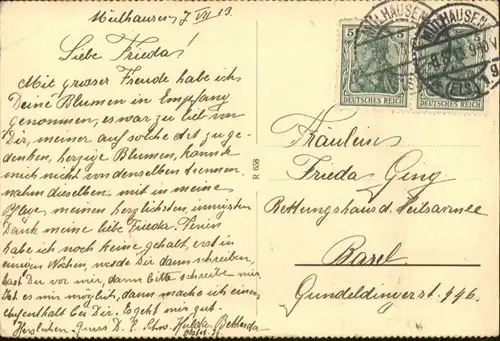 Mülhausen 7 VII 13.
Liebe Frieda!
Mit grosser Freude habe ich
Deine Blumen in Empfang
genommen, es war zu lieb von
Dir, meiner auf solche Art zu ge-
denken, herzige Blumen, konnte
mich nicht von denselben trennen,
nahm dieselben mit in meine
Pflege, meinen herzlichsten, innigsten
Dank meine liebe Frieda. Ferien
habe ich noch keine gehabt, erst in
einigen Wochen, werde Dir dann schreiben,
hast Du vor mir, dann bitte schreibe mir.
Ist es mir möglich, dann mache ich einen
Aufenthalt bei Dir. Es geht mir gut.
Herzlichen Gruss D. l. Schw. Hulda Bethesda
R 658
5 5
DEUTSCHES REICH
DEUTSCHES REICH
MÜLHAUSEN
MÜLHAUSEN
(ELS.)
Fräulein
Frieda Ging
Rettungshaus d. Heilsarmee
Basel
Gundeldingerst. 446.